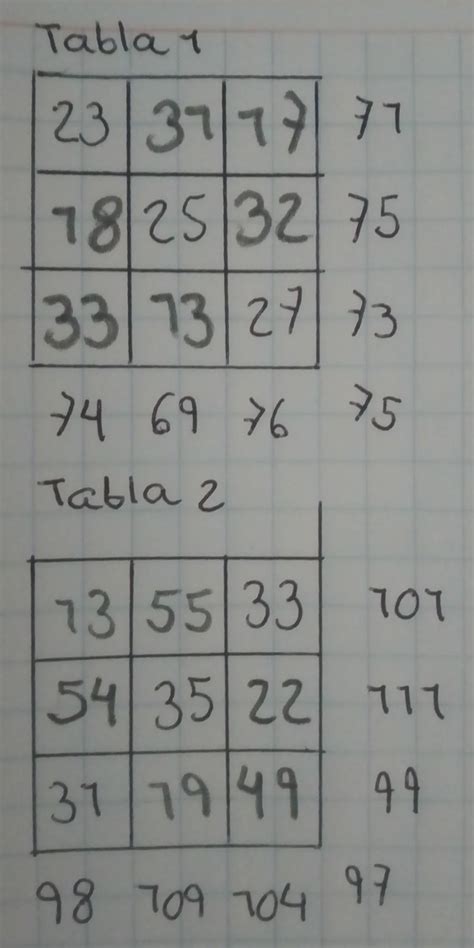 Tabla 1
23 31 17 71
18 25 32 75
33 13 27 73
74 69 76 75
Tabla 2
13 55 33 101
54 35 22 111
31 19 49 99
98 109 104 97